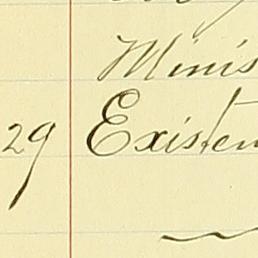 Minis
29 Existen